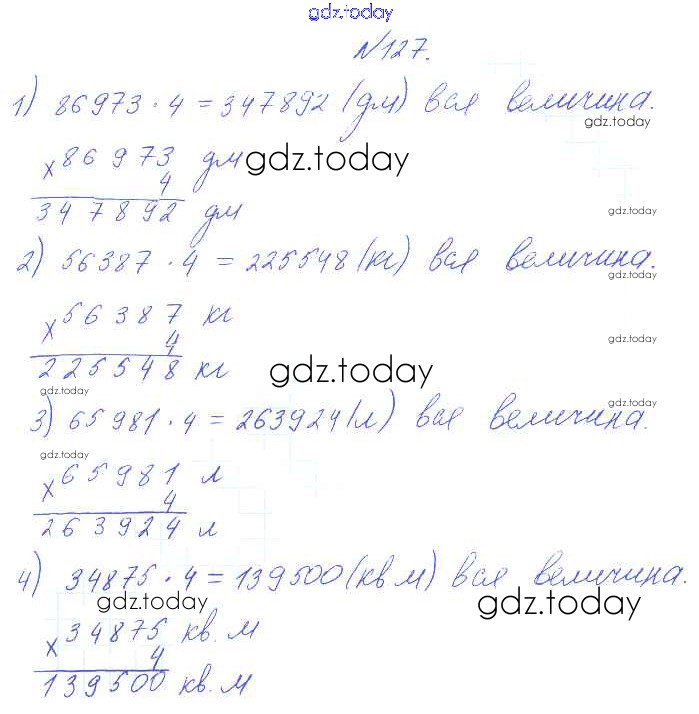 gdz.today
№127.
1) 86973 · 4 = 347892 (дм) вся величина.
gdz.today
× 86973 дм gdz.today
4
347892 дм gdz.today
2) 56387 · 4 = 225548 (кг) вся величина.
gdz.today
× 56387 кг
4 gdz.today
225548 кг gdz.today
gdz.today gdz.today
3) 65981 · 4 = 263924 (л) вся величина.
× 65981 л
4
263924 л
4) 34875 · 4 = 139500 (кв м) вся величина.
gdz.today gdz.today
× 34875 кв. м
4
139500 кв. м